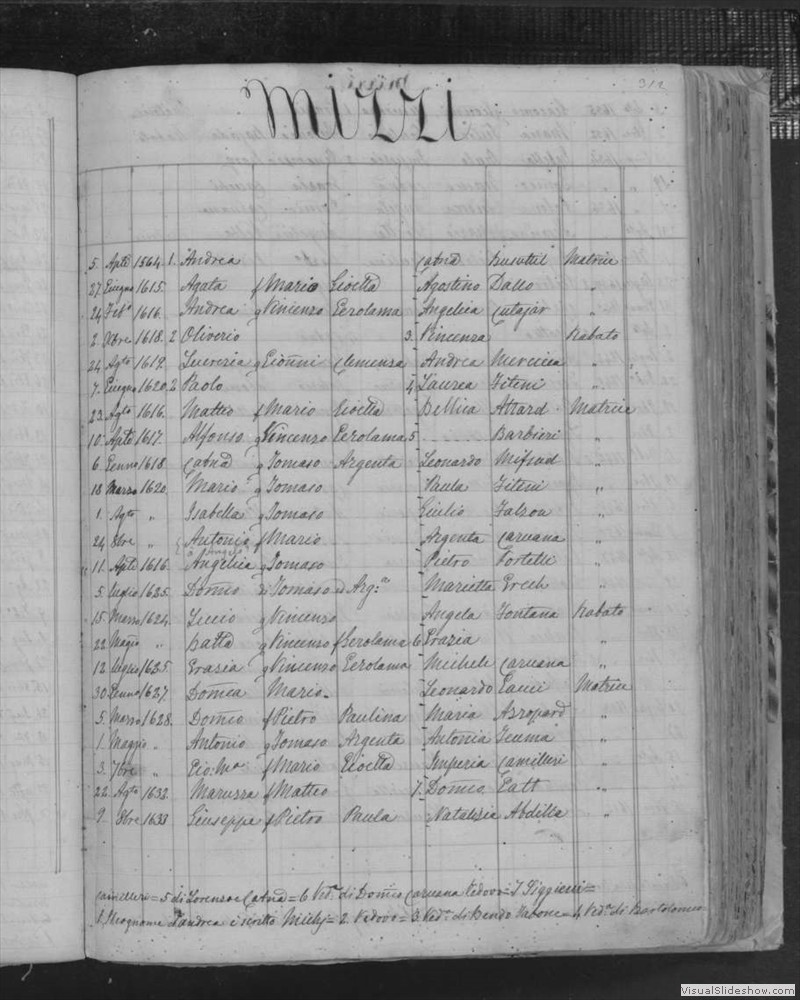 312
MIZZI
5. Aple 1564. 1. Andrea Catnd Busuttil Matrice
27 Giugno 1615. Agata f Mario Gioetta Agostino Dallo "
24 Feb.o 1616. Andrea q Vincenzo Gerolama Angelica Cutajar "
2. Xbre 1618. 2 Oliverio 3. Vincenza Rabato
24 Agto 1619. Lucrezia q Gionni Clemenza Andrea Mercieca "
7. Giugno 1620. 2 Paolo 4 Laurea Fiteni "
23. Agto 1616. Matteo f Mario Gioetta Bellica Attard Matrice
10. Aple 1617. Alfonso q Vincenzo Gerolama 5 Barbieri "
6. Genno 1618. Catnd q Tomaso Argenta Leonardo Mifsud "
18 Marzo 1620. Mario q Tomaso Paula Fiteni "
1. Agto " Isabella q Tomaso Giulio Falzon "
24 8bre " Antonia f Mario Argenta Caruana "
11. Aple 1616. Angelica q Tomaso Pietro Portelli "
5. Luglio 1625. Domco di Tomaso e Arg.a Marietta Grech "
15 Marzo 1624. Luccio q Vincenzo Angela Fontana Rabato
22. Maggio " Catta q Vincenzo f Gerolama 6 Grazia "
12 Luglio 1625. Grazia q Vincenzo Gerolama Michele Caruana "
30. Genno 1627. Domca Mario Leonardo Gauci Matrice
5. Marzo 1628. Domco f Pietro Paulina Maria Azzopard "
1. Maggio " Antonio q Tomaso Argenta Antonia "
3. 7bre " Gio: Ma f Mario Gioetta Imperia Camilleri "
22. Agto 1632. Maruzza f Matteo 7. Domco Gatt "
9. 8bre 1633 Giuseppe f Pietro Paula Natalizia Abdilla "
Camilleri = 5 di Lorenzo e Catnd = 6 Ved.a di Domco Caruana Vedovo = 7 Piggieni =
1. Il cognome d'Andrea è scritto Milly = 2. Vedovo = 3. Ved.a di Bendo Vabone = 4 Ved.a di Bartolomeo
VisualSlideshow.com